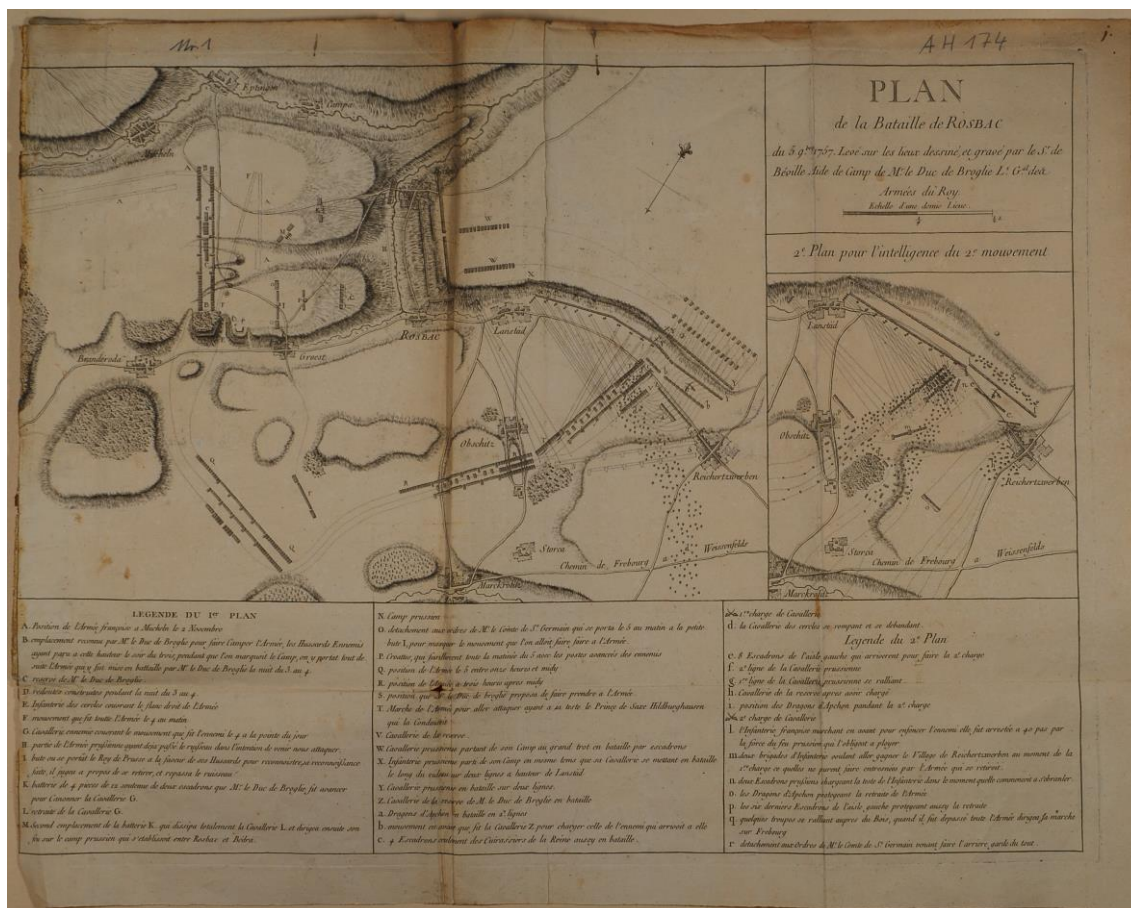 Nr. 1
AH 174
1.
PLAN
de la Bataille de ROSBAC
du 5 9.bre 1757. Levé sur les lieux dessiné, et gravé par le S.r de
Béville Aide de Camp de M.r le Duc de Broglie L.t G.al des
Armées du Roy.
Echelle d'une demie Lieue
2.e Plan pour l'intelligence du 2.e mouvement
Eptingen
Campo
Micheln
Branderoda
Groest
ROSBAC
Lanstäd
Obschitz
Reichertzwerben
Storca
Chemin de Frebourg
Weissenfelds
Marckrohlit
Lanstäd
Obschitz
Reichertzwerben
Storca
Chemin de Frebourg
Weissenfelds
Marckrohlitz
LEGENDE DU 1.er PLAN
A. Position de l'Armée française a Micheln le 2 Novembre
B. emplacement reconnu par M.r le Duc de Broglie pour faire Camper l'Armée, les Hussards Ennemis
ayant paru a cette hauteur le soir du trois, pendant que l'on marquoit le Camp, on y porta tout de
suite l'Armée qui y fut mise en battaille par M.r le Duc de Broglie la nuit du 3. au 4.
C. reserve de M.r le Duc de Broglie
D. redoutes construites pendant la nuit du 3 au 4.
E. Infanterie des cercles couvrant le flanc droit de l'Armée
F. mouvement que fit toutte l'Armée le 4 au matin
G. Cavallerie ennemie couvrant le mouvement que fit l'ennemi le 4 a la pointe du jour
H. partie de l'Armée prussienne ayant deja passé le ruisseau dans l'intention de venir nous attaquer.
I. bute ou se porta le Roy de Prusse a la faveur de ses Hussards pour reconnoistre, sa reconnoissance
faite, il jugea a propos de se retirer, et repassa le ruisseau.
K. batterie de 4 pieces de 12 soutenue de deux escadrons que M.r le Duc de Broglie, fit avancer
pour Canonner la Cavallerie G.
L. retraite de la Cavallerie G.
M. Second emplacement de la batterie K. qui dissipa totalement la Cavallerie L. et dirigea ensuite son
feu sur le camp prussien qui s'etablissoit entre Rosbac et Bedra.
N. Camp prussien
O. detachement aux ordres de M.r le Comte de S.t Germain qui se porta le 5 au matin a la petite
bute I, pour masquer le mouvement que l'on alloit faire faire a l'Armée.
P. Croattes, qui fusillerent toute la matinée du 5 avec les postes avancés des ennemis
Q. position de l'Armée le 5 entre onze heures et midy
R. position de l'Armée a trois heures apres midy
S. position que M.r le Duc de broglie proposa de faire prendre a l'Armée.
T. Marche de l'Armée pour aller attaquer ayant a sa teste le Prince de Saxe Hildburghausen
qui la Conduisoit
V. Cavallerie de la reserve.
W. Cavallerie prussienne partant de son Camp au grand trot en bataille par escadrons
X. Infanterie prussienne partie de son Camp en mesme tems que sa Cavallerie se mettant en bataille
le long du rideau sur deux lignes a hauteur de Lanstäd.
Y. Cavallerie prussienne en bataille sur deux lignes.
Z. Cavallerie de la reserve de M. le Duc de Broglie en bataille
a. Dragons d'Apchon en bataille en 2.e lignes
b. mouvement en avant que fit la Cavallerie Z pour charger celle de l'ennemi qui arrivoit a elle
c. 4 Escadrons seulement des Cuirassiers de la Reine aussy en bataille.
1.ere charge de Cavallerie
d. la Cavallerie des cercles se rompant et se debandant.
Legende du 2.e Plan
e. 8 Escadrons de l'aisle gauche qui arriverent pour faire la 2.e charge
f. 2.e ligne de la Cavallerie prussienne
g. 1.ere ligne de la Cavallerie prussienne se ralliant.
h. Cavallerie de la reserve apres avoir chargé
i. position des Dragons d'Apchon pandant la 2.e charge
2.e charge de Cavallerie.
l. l'Infanterie françoise marchant en avant pour enfoncer l'ennemi elle fut arrestée a 40 pas par
la force du feu prussien qui l'obligea a ployer
m. deux brigades d'Infanterie voulant aller gagner le Village de Reichertzwerben au moment de la
1.ere charge ce qu'elles ne purent faire entrainées par l'Armée qui se retiroit.
n. deux Escadrons prussiens chargeant la teste de l'Infanterie dans le moment qu'elle commençoit a s'ebranler
o. les Dragons d'Apchon protegeant la retraite de l'Armée
p. les six derniers Escadrons de l'aisle gauche protegeant aussy la retraite
q. quelques troupes se ralliant aupres du Bois, quand il fut depassé toute l'Armée dirigea sa marche
sur Frebourg
r. detachement aux Ordres de M.r le Comte de S.t Germain venant faire l'arriere garde du tout.